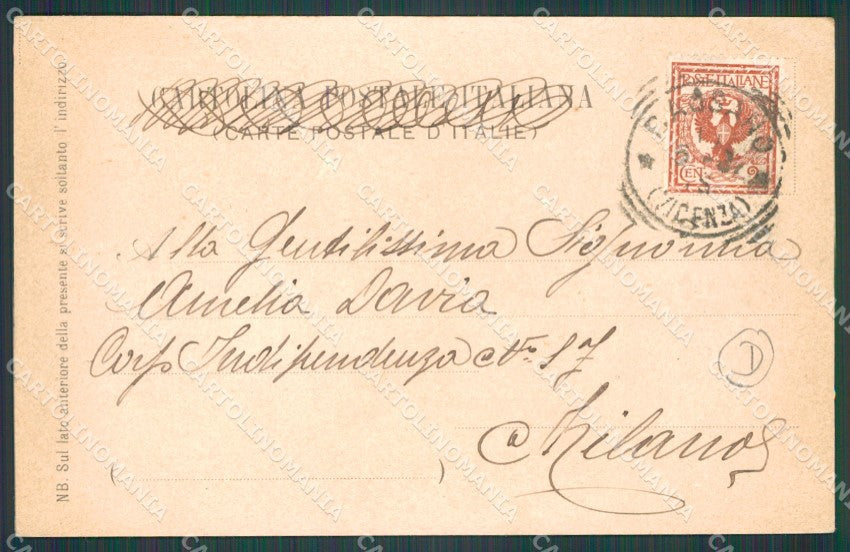 CARTOLINA POSTALE ITALIANA
(CARTE POSTALE D'ITALIE)
POSTE ITALIANE
CEN. 2
(VICENZA)
Alla Gentilissima Signorina
Amelia Davia
Corso Indipendenza No. 17
Milano
D
NB. Sul lato anteriore della presente si scrive soltanto l'indirizzo
CARTOLINOMANIA